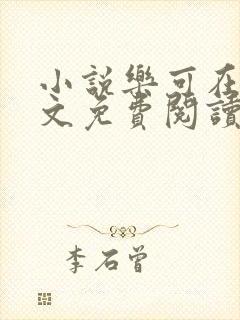 小说樂可在
文免費閱讀
李石曾